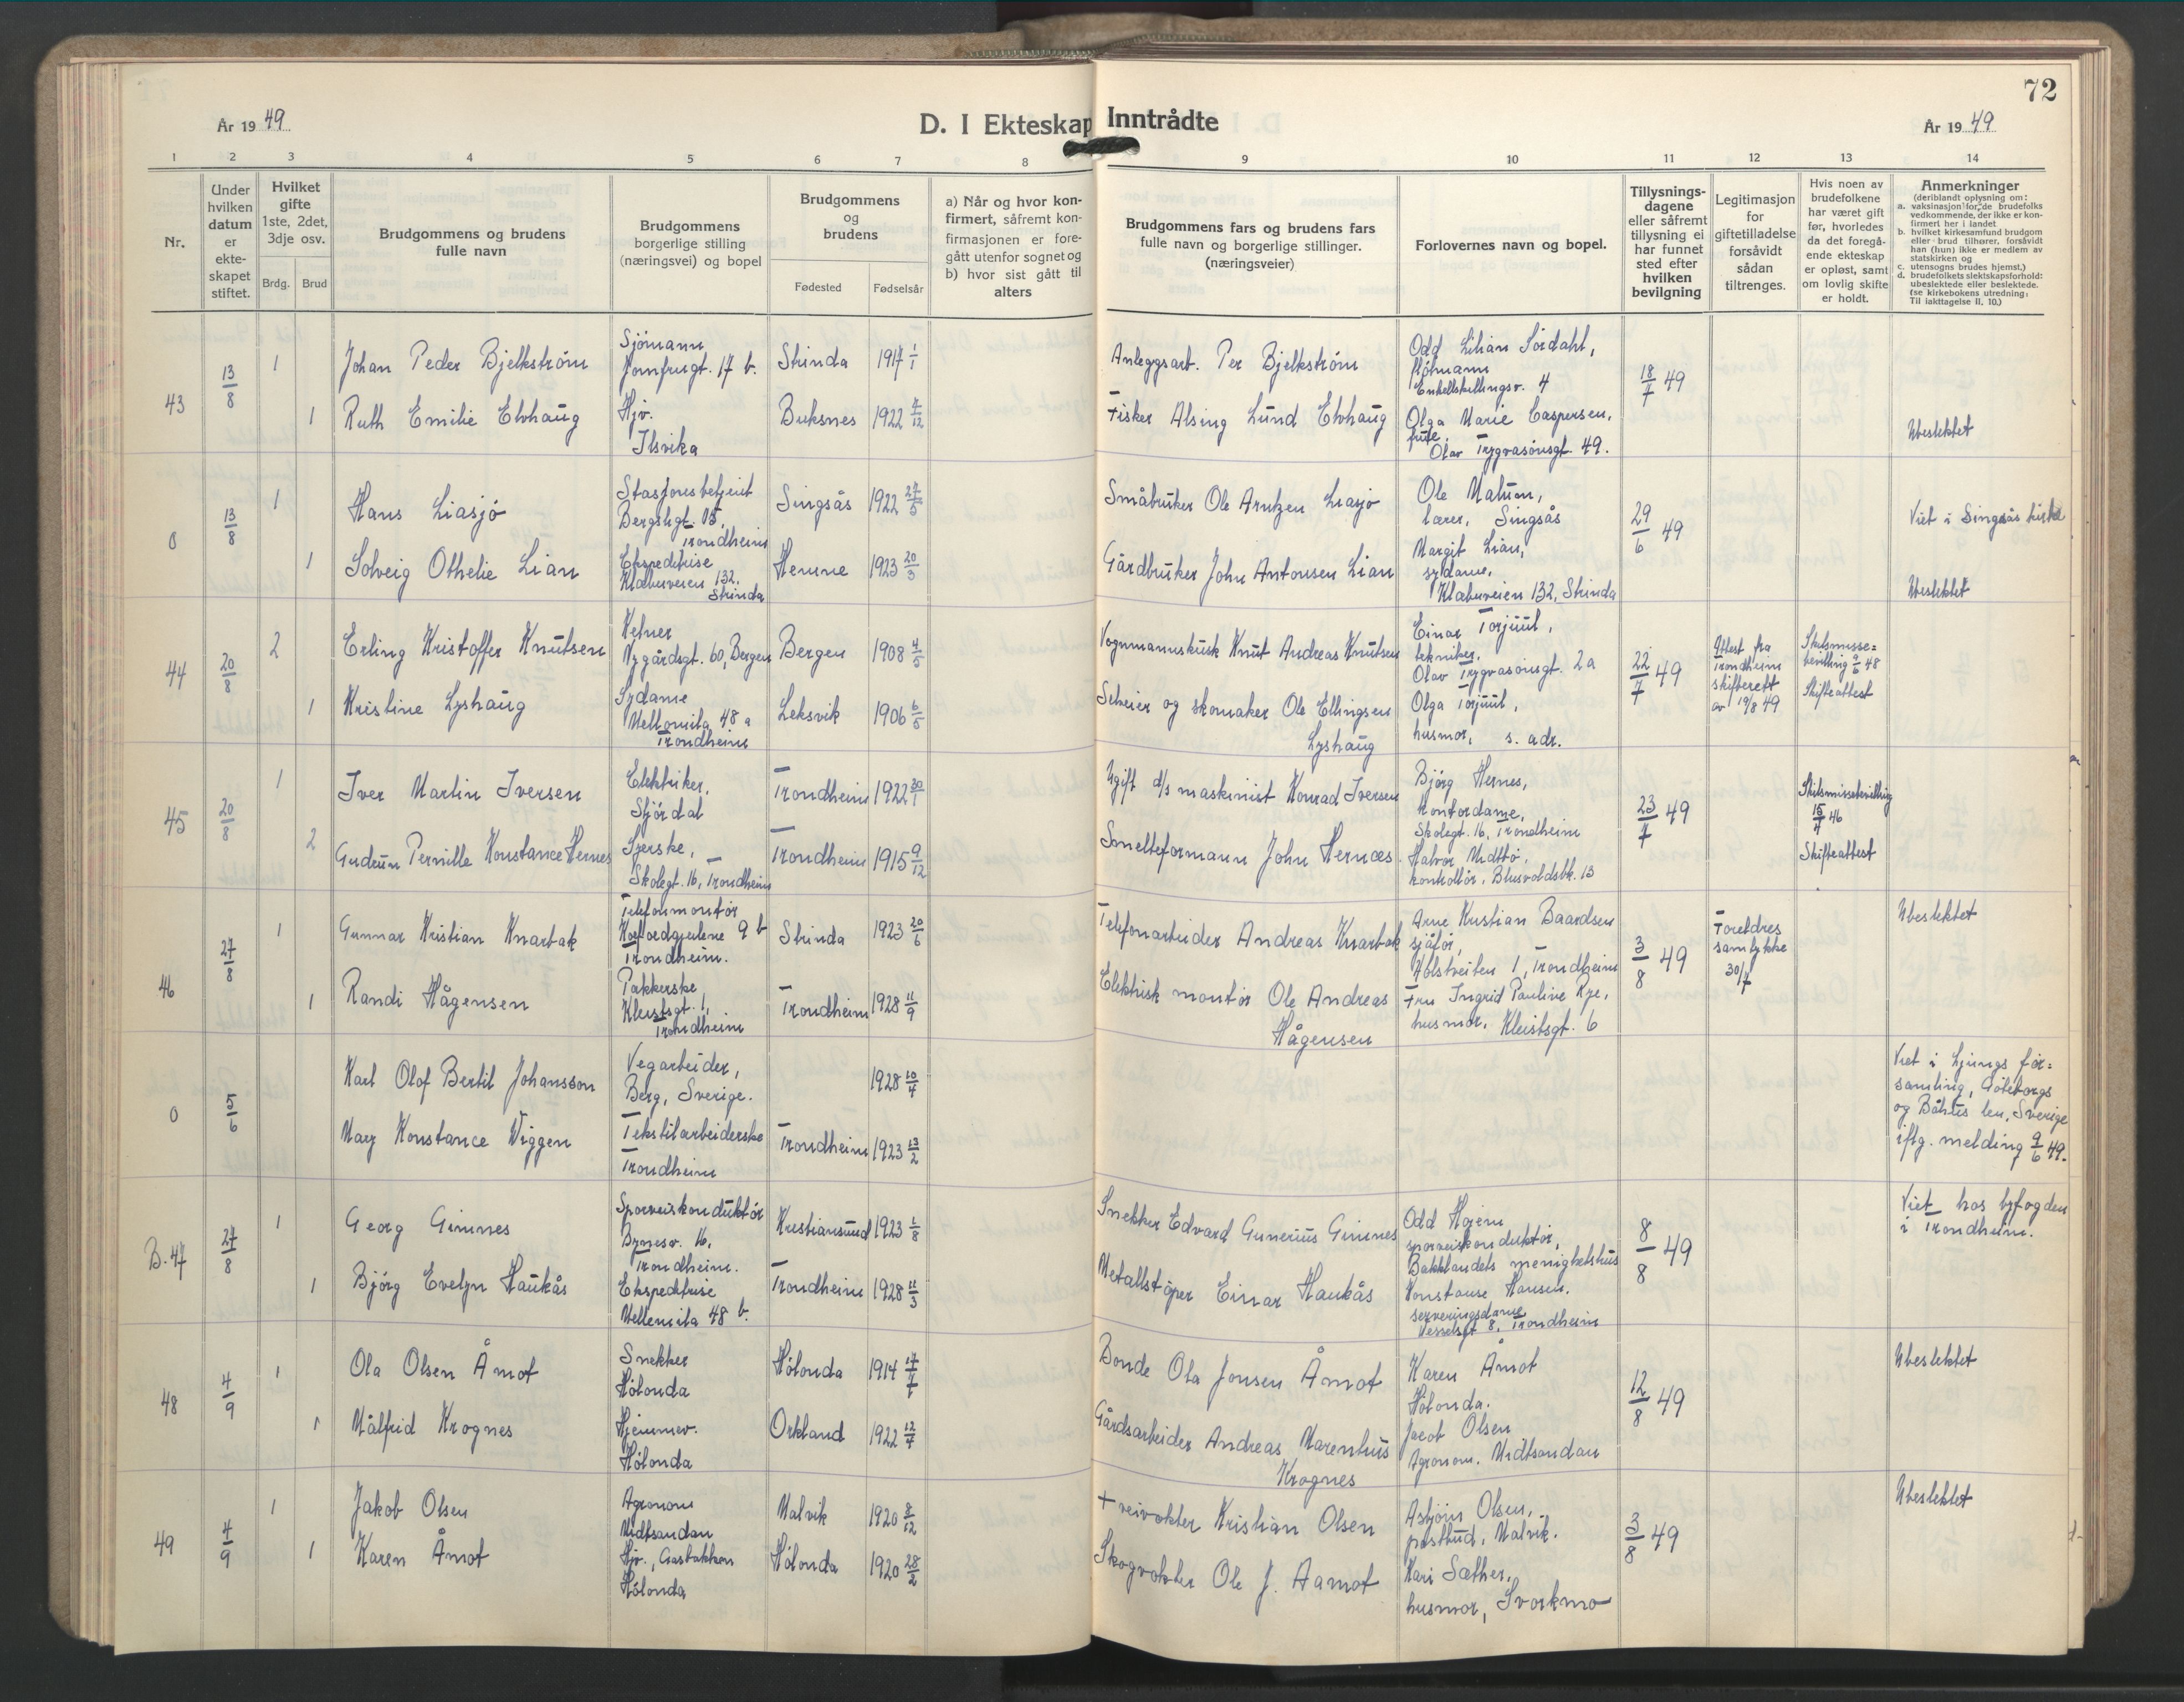 72
År 1949
D. I Ekteskap Inntrådte
År 1949
1 2 3 4 5 6 7 8 9 10 11 12 13 14
Nr.
Under hvilken datum er ekte-skapet stiftet.
Hvilket gifte 1ste, 2det, 3dje osv.
Brdg. Brud
Brudgommens og brudens fulle navn
Brudgommens borgerlige stilling (næringsvei) og bopel
Brudgommens og brudens
Fødested Fødselsår
a) Når og hvor kon-firmert, såfremt kon-firmasjonen er fore-gått utenfor sognet og
b) hvor sist gått til alters
Brudgommens fars og brudens fars fulle navn og borgerlige stillinger. (næringsveier)
Forlovernes navn og bopel.
Tillysnings-dagene eller såfremt tillysning ei har funnet sted efter hvilken bevilgning
Legitimasjon for giftetilladelse forsåvidt sådan tiltrenges.
Hvis noen av brudefolkene har været gift før, hvorledes da det foregå-ende ekteskap er opløst, samt om lovlig skifte er holdt.
Anmerkninger
(deriblandt oplysning om:
a. vaksinasjon for de brudefolks vedkommende, der ikke er kon-firmert her i landet
b. hvilket kirkesamfund brudgom eller brud tilhører, forsåvidt han (hun) ikke er medlem av statskirken og
c. utensogns brudes hjemst.)
d. brudefolkets slektskapsforhold: ubeslektede eller beslektede. (se kirkebokens utredning: Til iakttagelse II. 10.)
43 13/8 1 Johan Peder Bjelkstrøm
Sjömann
Jomfrugt. 17 b.
Strinda 1917 1/1
Anleggsarb. Per Bjelkstrøm
Odd Lilian Sördahl,
sjömann
Enkeltskillingsv. 4
18/7 49
1 Ruth Emilie Elvhaug
Hjv.
Ilsvika
Buksnes 1922 7/12
Fisker Alsing Lund Elvhaug
Olga Marie Caspersen,
frue,
Olav Trygvasönsgt. 49.
Ubeslektet
0 13/8 1 Hans Liasjö
Stasjonsbetjent
Bergsligt. 15,
Trondheim
Singsås 1922 27/5
Småbruker Ole Arntzen Liasjö
Ole Malum,
lærer, Singsås
29/6 49
Viet i Singsås kirke
1 Solveig Othelie Lian
Ekspeditrise
Klæbuveien 132.
Strinda
Hemne 1923 20/3
Gårdbruker John Antonsen Lian
Margit Lian,
sydame,
Klæbuveien 132, Strinda
Ubeslektet
44 20/8 2 Erling Kristoffer Knutsen
Kelner
Nygårdsgt. 60, Bergen
Bergen 1908 4/5
Vognmannskusk Knut Andreas Knutsen
Einar Torjuul,
tekniker,
Olav Trygvasönsgt. 2a
22/7 49
Attest fra
Trondheim
skifterett
av 19/8 49
Skilsmisse=
bevilling 9/6 48
Skifteattest
1 Kristine Lyshaug
Sydame
Mellomila 48 a
Trondheim
Leksvik 1906 6/5
Selveier og skomaker Ole Ellingsen
Lyshaug
Olga Torjuul,
husmor, s. adr.
45 20/8 1 Iver Martin Iversen
Elektriker,
Stjördal
Trondheim 1922 30/1
Ugift d/s maskinist Konrad Iversen
Bjórg Hernes,
kontordame,
Skolegt. 16, Trondheim
23/7 49
Skilsmissebevilling
15/7 46
Skifteattest
2 Gudrun Pernille Konstance Hernes
Syerske,
Skolegt. 16, Trondheim
Trondheim 1915 9/12
Smelteformann John Hernæs.
Halvor Midtbö,
kontrollör, Blusvoldsbk. 13
46 27/8 1 Gunnar Kristian Knarbak
Telefonmontör
Koefoedgeilene 9 b
Trondheim.
Strinda 1923 20/6
Telefonarbeider Andreas Knarbak
Arne Kristian Baardsen
sjåför,
Holstveiten 1, Trondheim
3/8 49
Foreldres
samtykke
30/7
Ubeslektet
1 Randi Hågensen
Pakkerske,
Kleistsgt. 1,
Trondheim
Trondheim 1928 11/9
Elektrisk montör Ole Andreas
Hågensen
Fru Ingrid Pauline Rye,
husmor, Kleistsgt. 6
0 5/6 Karl Olof Bertil Johansson
Vegarbeider,
Berg, Sverige.
1928 10/4
Viet i Ljungs för=
samling, Göteborgs
og Bohus len, Sverige
iflg. melding 9/6 49.
May Konstance Wiggen
Tekstilarbeiderske
Trondheim
Trondheim 1923 13/2
B. 47 27/8 1 Georg Gimnes
Sporveiskonduktör
Bynesv. 16,
Trondheim.
Kristiansund 1923 1/8
Snekker Edvard Gunerius Gimnes
Odd Hojem
sporveiskonduktör,
Bakklandets menighetshus
8/8 49
Viet hos byfogden
i Trondheim.
1 Bjórg Evelyn Haukås
Ekspeditrise
Mellemila 48 b.
Trondheim 1928 11/3
Metallstöper Einar Haukås
Konstanse Hansen.
serveringsdame
Wesselsgt 8, Trondheim
48 4/9 1 Ola Olsen Åmot
Snekker
Hölonda
Hölonda 1914 17/7
Bonde Ola Jonsen Åmot
Karen Åmot
Hölonda.
12/8 49
Ubeslektet
1 Målfrid Krognes
Hjemmev.
Hölonda
Orkland 1922 12/7
Gårdsarbeider Andreas Marenhus
Krognes
Jacob Olsen
Agronom. Midtsandan
49 4/9 1 Jakob Olsen
Agronom
Midtsandan
Malvik 1920 8/12
+ veivokter Kristian Olsen
Asbjörn Olsen,
postbud, Malvik.
3/8 49
Ubeslektet
1 Karen Åmot
Hjv., Gasbakken
Hölonda
Hölonda 1920 28/2
Skogvokter Ole J. Aamot
Kari Sæther,
husmor, Svorkmo